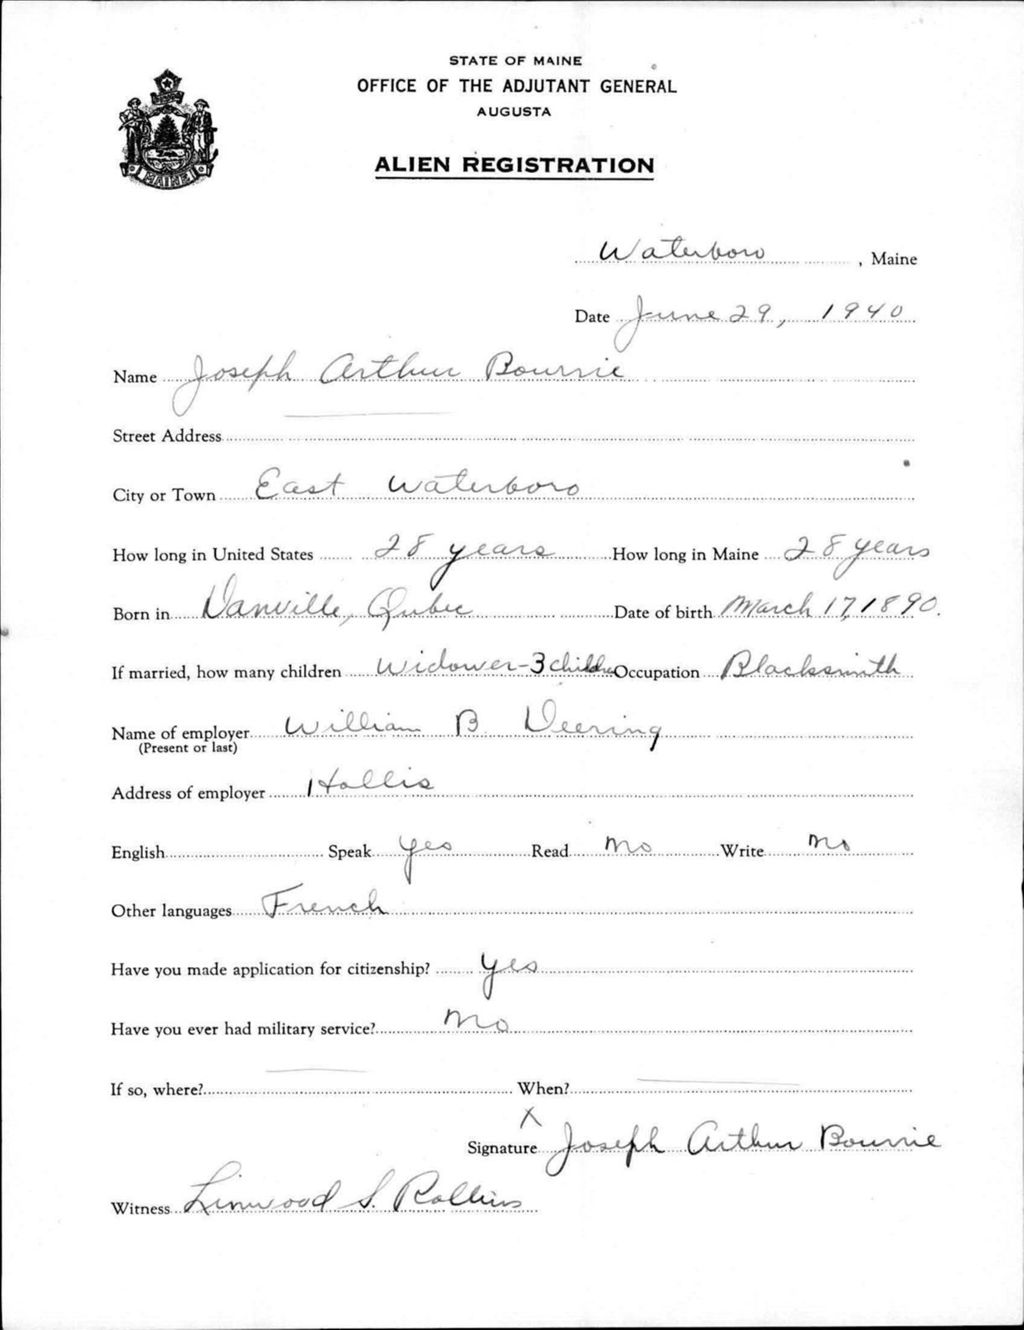 STATE OF MAINE
OFFICE OF THE ADJUTANT GENERAL
AUGUSTA
ALIEN REGISTRATION
MAINE
Waterboro, Maine
Date June 29, 1940
Name Joseph Arthur Bournie
Street Address
City or Town East Waterboro
How long in United States 28 years How long in Maine 28 years
Born in Danville, Qubec Date of birth March 17, 1890.
If married, how many children Widower-3 children Occupation Blacksmith
Name of employer William B Deering
(Present or last)
Address of employer Hollis
English Speak Yes Read No Write No
Other languages French
Have you made application for citizenship? Yes
Have you ever had military service? No
If so, where? When?
X
Signature Joseph Arthur Bournie
Witness Linwood S. Rollins